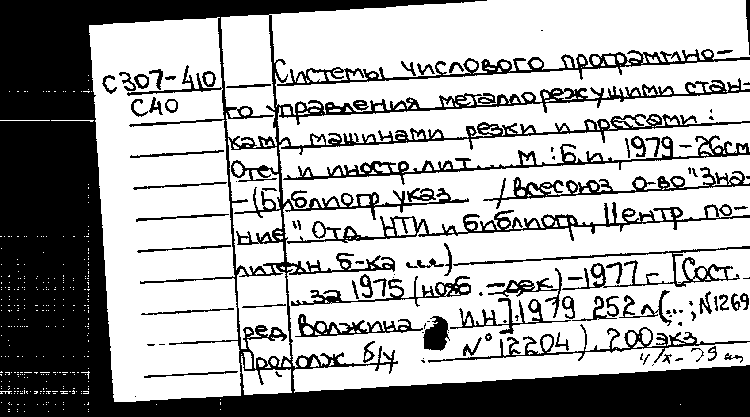 С307-410
С40
Системы числового программно-
го управления металлорежущими стан-
ками, машинами резки и прессами:
Отеч. и иностр. лит. ... М.: Б.и., 1979 - 26см
-(Библиогр. указ. /Всесоюз о-во "Зна-
ние". Отд. НТИ и библиогр., Центр. по-
литехн. б-ка ...)
... за 1975 (нояб. - дек) - 1977 г. [Сост.
ред Волжина И.Н.] 1979 252 л (...; N1269
Продолж. б/у N° 12204). 200 экз.